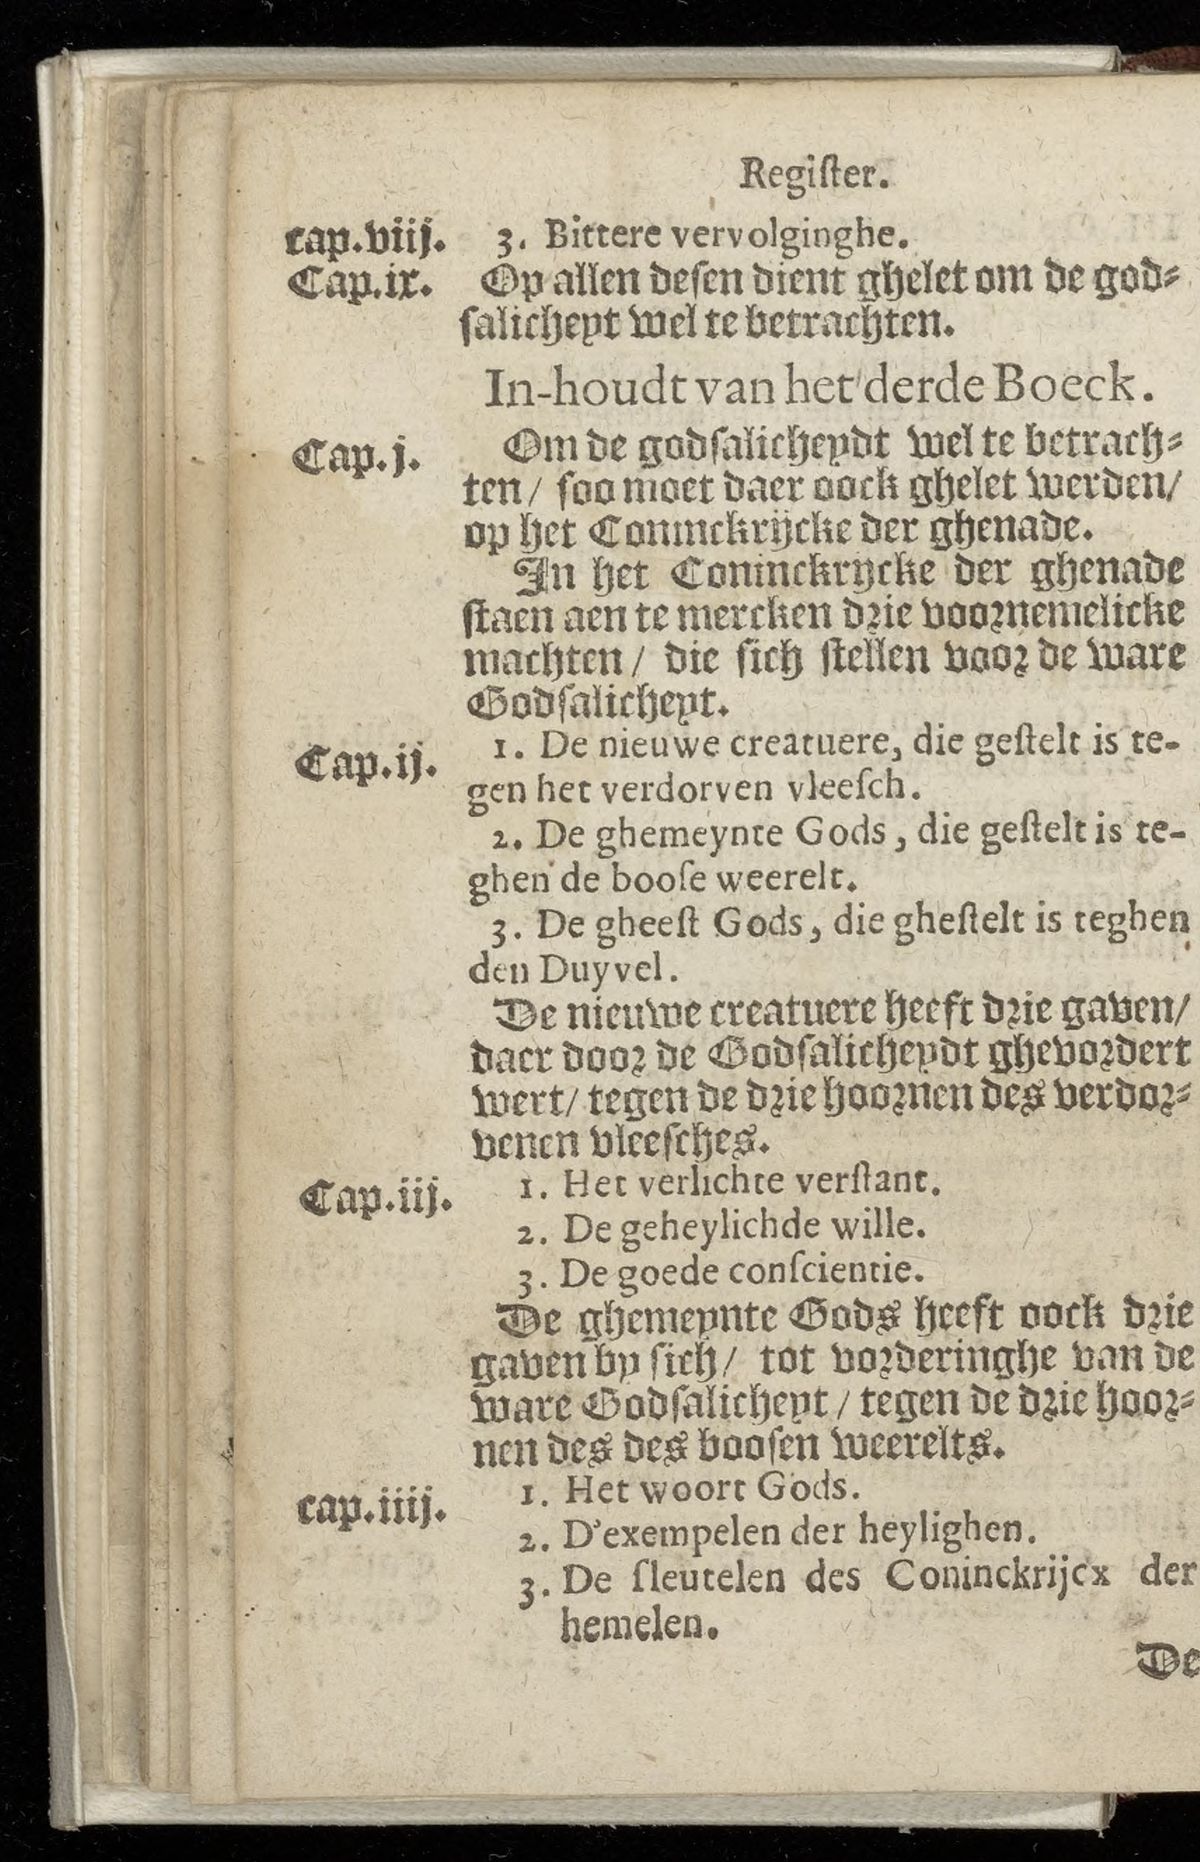 Regiſter.
cap.viij. 3. Bittere vervolginghe.
Cap.ix. Op allen deſen dient ghelet om de god-
ſalicheyt wel te betrachten.
In-houdt van het derde Boeck.
Cap.j. Om de godſalicheydt wel te betrach-
ten/ ſoo moet daer oock ghelet werden/
op het Coninckrijcke der ghenade.
In het Coninckrijcke der ghenade
ſtaen aen te mercken drie voornemelicke
machten/ die ſich ſtellen voor de ware
Godſalicheyt.
Cap.ij. 1. De nieuwe creatuere, die geſtelt is te-
gen het verdorven vleeſch.
2. De ghemeynte Gods, die geſtelt is te-
ghen de booſe weerelt.
3. De gheeſt Gods, die gheſtelt is teghen
den Duyvel.
De nieuwe creatuere heeft drie gaven/
daer door de Godſalicheydt ghevordert
wert/ tegen de drie hoornen des verdor-
venen vleeſches.
Cap.iij. 1. Het verlichte verſtant.
2. De geheylichde wille.
3. De goede conſcientie.
De ghemeynte Gods heeft oock drie
gaven by ſich/ tot vorderinghe van de
ware Godſalicheyt/ tegen de drie hoor-
nen des des booſen weerelts.
cap.iiij. 1. Het woort Gods.
2. D'exempelen der heylighen.
3. De ſleutelen des Coninckrijcx der
hemelen.
De